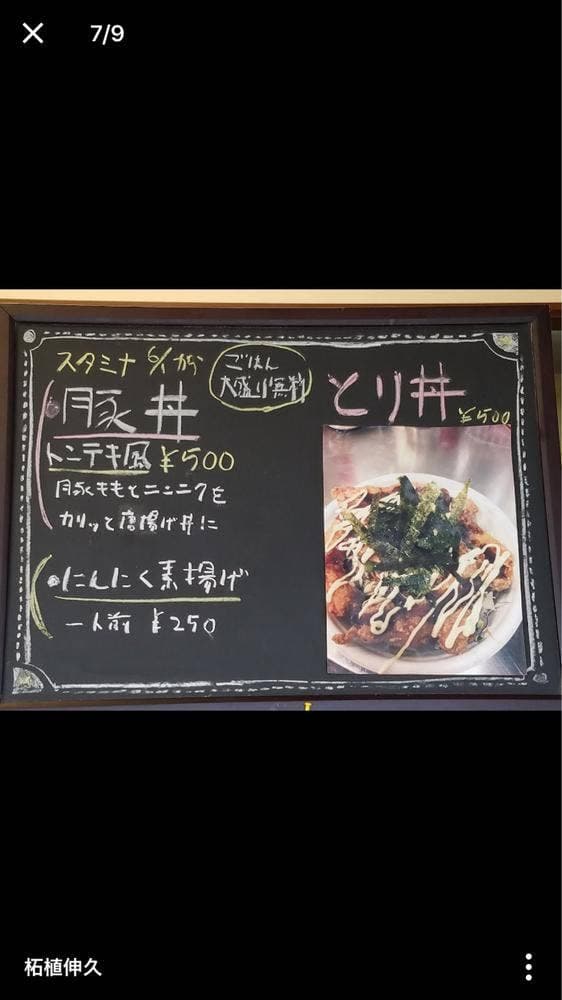 7/9
スタミナ 6/1から
豚丼
ごはん
大盛り無料
とり丼
¥500
トンテキ風 ¥500
豚ももとニンニクを
カリッと唐揚げ丼に
●にんにく素揚げ
一人前 ¥250
柘植伸久